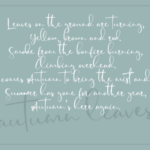 Leaves on the ground are turning,
Yellow, brown and red,
Smoke from the bonfire burning,
Climbing overhead.
Leaves Autumn to bring the mist and
Summer has gone for another year,
Autumn's here again.
autumn leaves